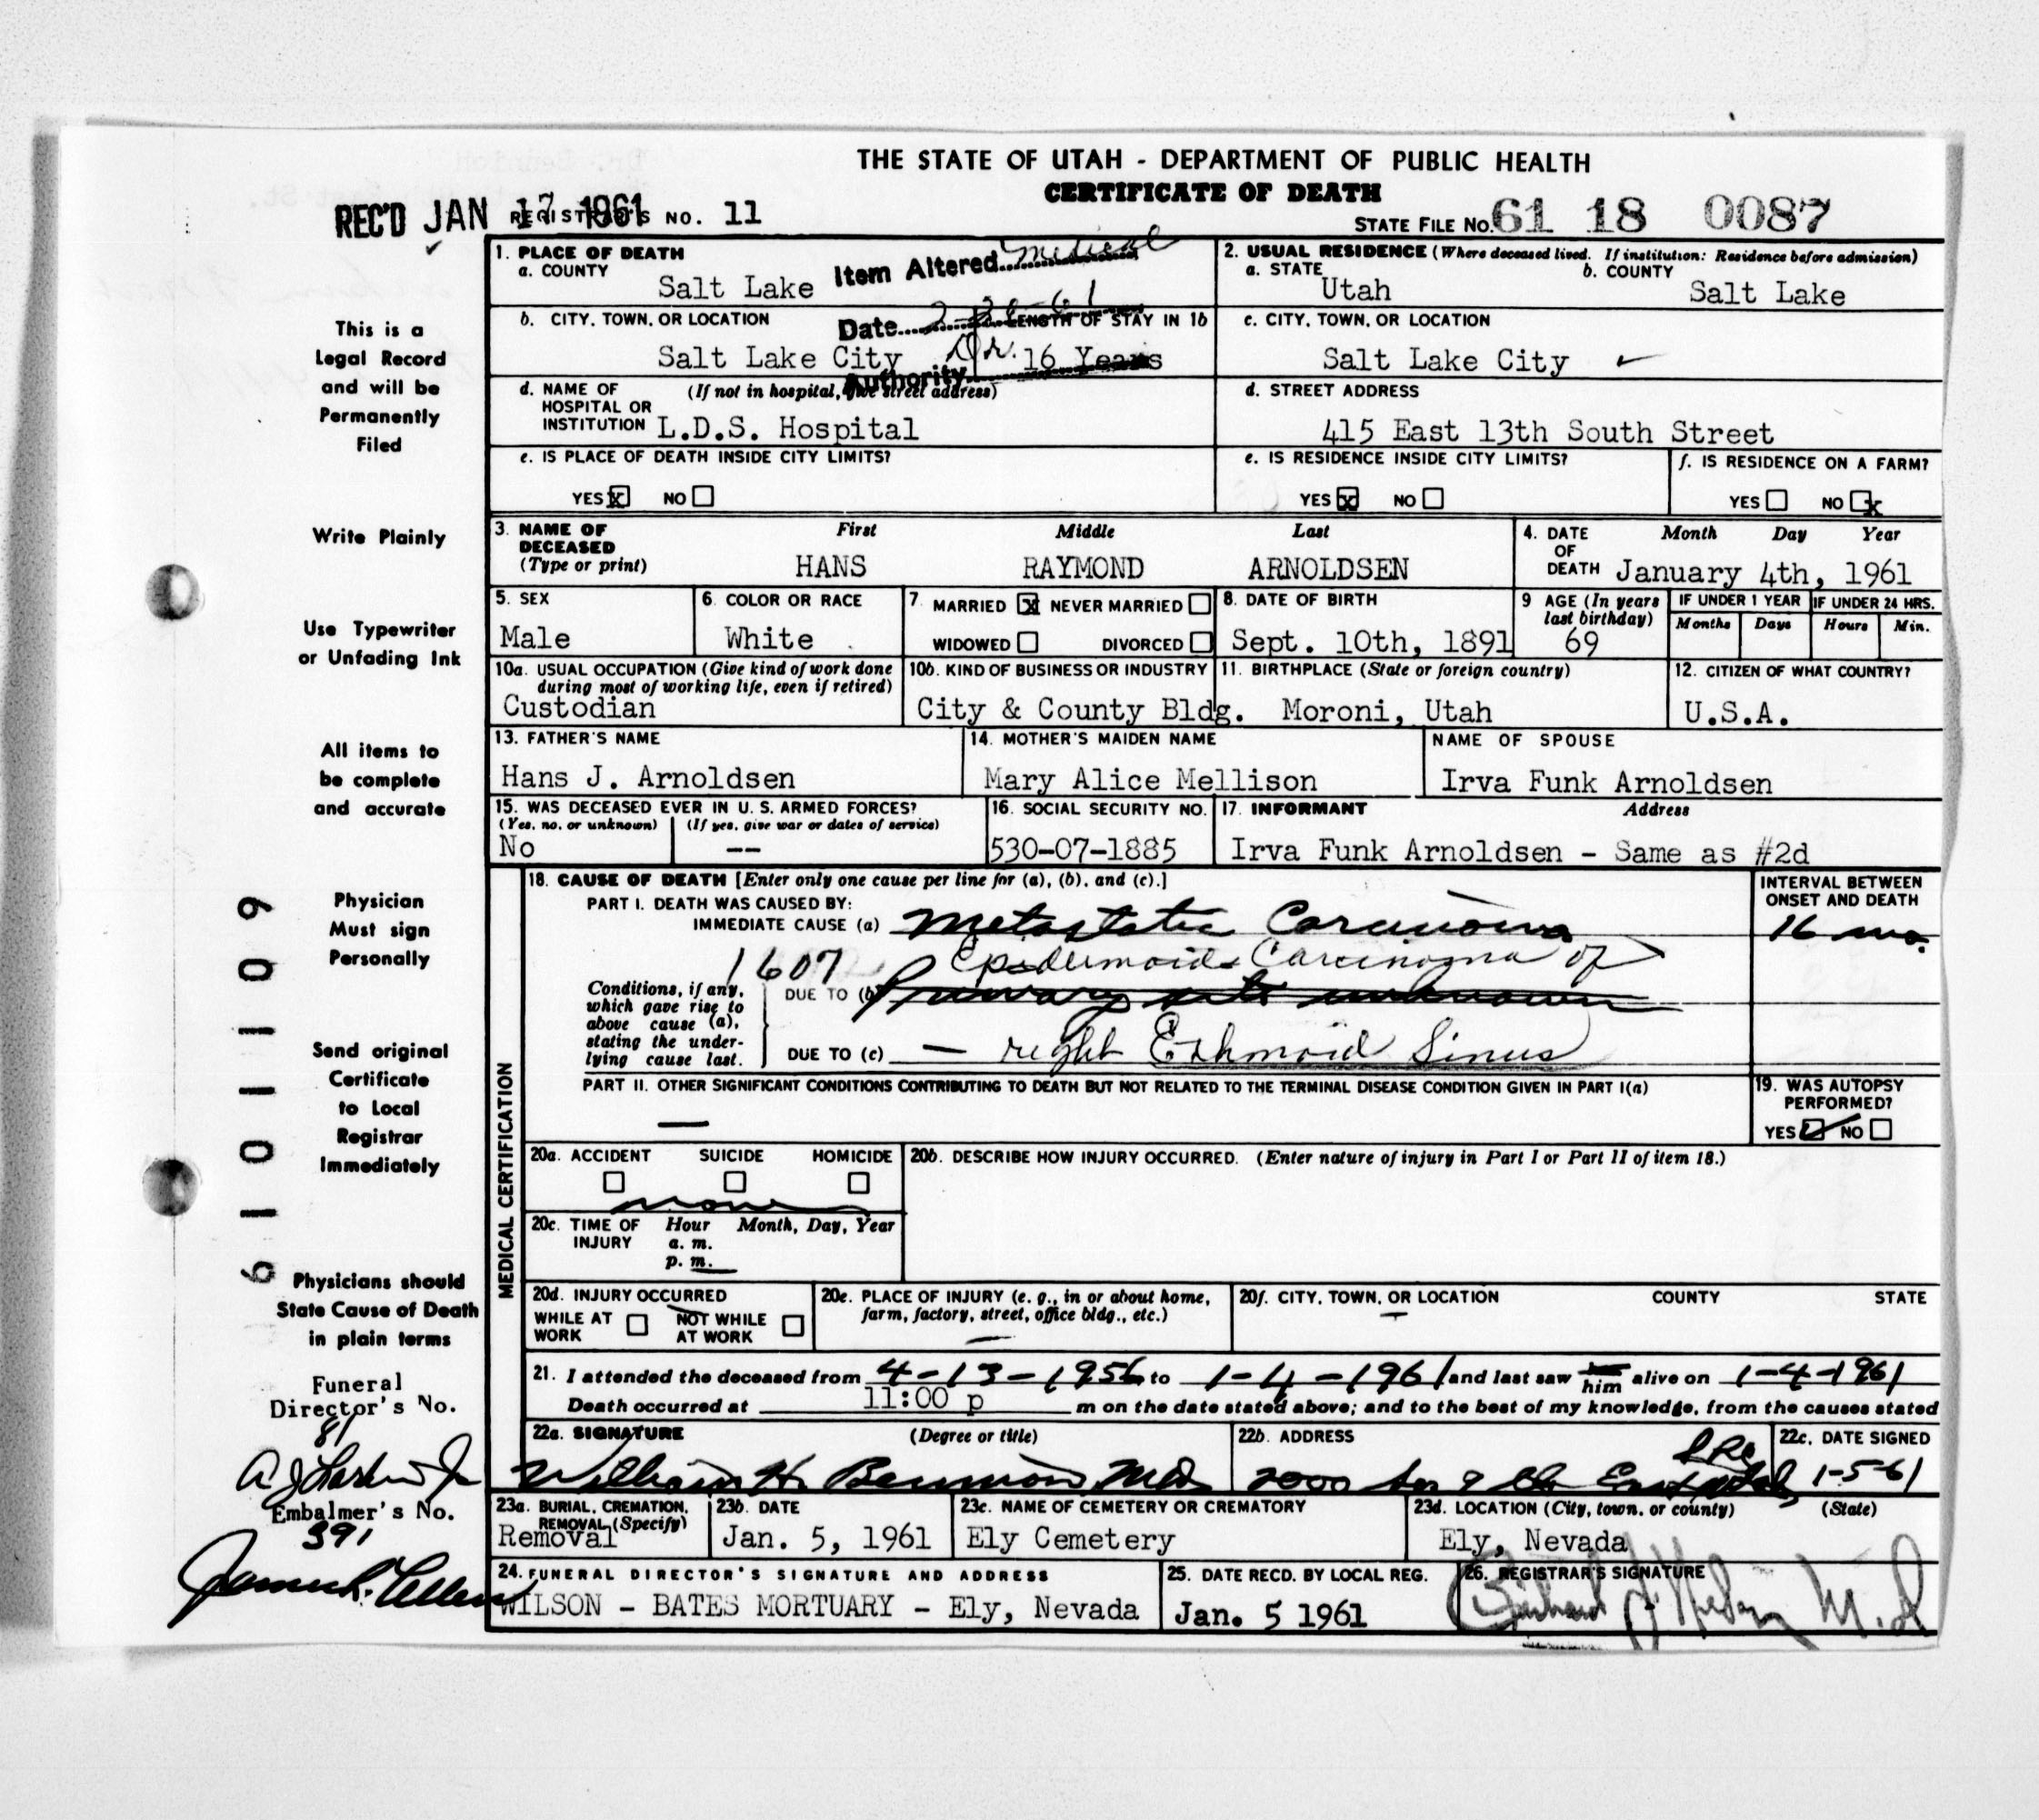 THE STATE OF UTAH - DEPARTMENT OF PUBLIC HEALTH
CERTIFICATE OF DEATH
REC'D JAN 17 1961 REGISTRAR'S NO. 11
STATE FILE NO. 61 18 0087
This is a
Legal Record
and will be
Permanently
Filed
Write Plainly
Use Typewriter
or Unfading Ink
All items to
be complete
and accurate
Physician
Must sign
Personally
Send original
Certificate
to Local
Registrar
Immediately
Physicians should
State Cause of Death
in plain terms
Funeral
Director's No.
81
Embalmer's No.
391
6101109
1. PLACE OF DEATH
a. COUNTY
Salt Lake
Item Altered Medical
Date
Authority Dr.
2. USUAL RESIDENCE (Where deceased lived. If institution: Residence before admission)
a. STATE b. COUNTY
Utah Salt Lake
b. CITY, TOWN, OR LOCATION LENGTH OF STAY IN 1b
Salt Lake City 16 Years
c. CITY, TOWN, OR LOCATION
Salt Lake City
d. NAME OF (If not in hospital, give street address)
HOSPITAL OR
INSTITUTION L.D.S. Hospital
d. STREET ADDRESS
415 East 13th South Street
e. IS PLACE OF DEATH INSIDE CITY LIMITS?
YES x NO
e. IS RESIDENCE INSIDE CITY LIMITS?
YES x NO
f. IS RESIDENCE ON A FARM?
YES NO x
3. NAME OF First Middle Last
DECEASED
(Type or print) HANS RAYMOND ARNOLDSEN
4. DATE Month Day Year
OF
DEATH January 4th, 1961
5. SEX
Male
6. COLOR OR RACE
White
7. MARRIED x NEVER MARRIED
WIDOWED DIVORCED
8. DATE OF BIRTH
Sept. 10th, 1891
9 AGE (In years
last birthday)
69
IF UNDER 1 YEAR IF UNDER 24 HRS.
Months Days Hours Min.
10a. USUAL OCCUPATION (Give kind of work done
during most of working life, even if retired)
Custodian
10b. KIND OF BUSINESS OR INDUSTRY
City & County Bldg.
11. BIRTHPLACE (State or foreign country)
Moroni, Utah
12. CITIZEN OF WHAT COUNTRY?
U.S.A.
13. FATHER'S NAME
Hans J. Arnoldsen
14. MOTHER'S MAIDEN NAME
Mary Alice Mellison
NAME OF SPOUSE
Irva Funk Arnoldsen
15. WAS DECEASED EVER IN U. S. ARMED FORCES?
(Yes, no, or unknown) (If yes, give war or dates of service)
No --
16. SOCIAL SECURITY NO.
530-07-1885
17. INFORMANT Address
Irva Funk Arnoldsen - Same as #2d
MEDICAL CERTIFICATION
18. CAUSE OF DEATH [Enter only one cause per line for (a), (b), and (c).]
PART I. DEATH WAS CAUSED BY:
IMMEDIATE CAUSE (a) Metastatic Carcinoma
INTERVAL BETWEEN
ONSET AND DEATH
16 mo.
1607 Epidermoid Carcinoma of
Conditions, if any,
which gave rise to
above cause (a),
stating the under-
lying cause last.
DUE TO (b) Primary site unknown
DUE TO (c) — right Ethmoid Sinus
PART II. OTHER SIGNIFICANT CONDITIONS CONTRIBUTING TO DEATH BUT NOT RELATED TO THE TERMINAL DISEASE CONDITION GIVEN IN PART I(a)
—
19. WAS AUTOPSY
PERFORMED?
YES NO
20a. ACCIDENT SUICIDE HOMICIDE
none
20b. DESCRIBE HOW INJURY OCCURRED. (Enter nature of injury in Part I or Part II of item 18.)
20c. TIME OF Hour Month, Day, Year
INJURY a. m.
p. m.
20d. INJURY OCCURRED
WHILE AT NOT WHILE
WORK AT WORK
20e. PLACE OF INJURY (e. g., in or about home,
farm, factory, street, office bldg., etc.)
20f. CITY, TOWN, OR LOCATION COUNTY STATE
21. I attended the deceased from 4-13-1956 to 1-4-1961 and last saw him alive on 1-4-1961
Death occurred at 11:00 p m on the date stated above; and to the best of my knowledge, from the causes stated
22a. SIGNATURE (Degree or title)
William H. Bennion MD
22b. ADDRESS
2000 So 9 East
22c. DATE SIGNED
1-5-61
23a. BURIAL, CREMATION,
REMOVAL (Specify)
Removal
23b. DATE
Jan. 5, 1961
23c. NAME OF CEMETERY OR CREMATORY
Ely Cemetery
23d. LOCATION (City, town, or county) (State)
Ely, Nevada
24. FUNERAL DIRECTOR'S SIGNATURE AND ADDRESS
WILSON - BATES MORTUARY - Ely, Nevada
25. DATE RECD. BY LOCAL REG.
Jan. 5 1961
26. REGISTRAR'S SIGNATURE
M.D